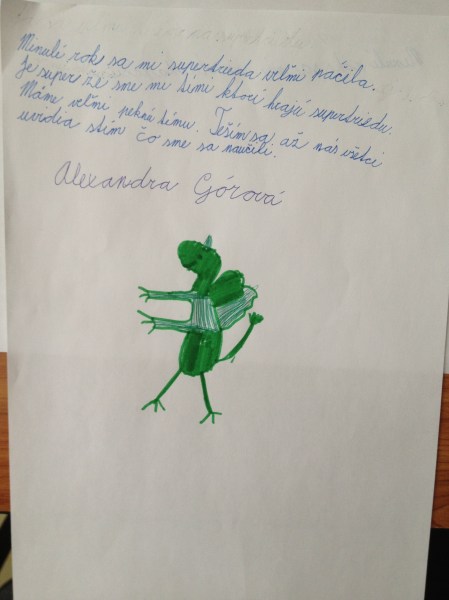 Minulí rok sa mi supertrieda veľmi páčila.
Je super že sme mi tími ktorí hrajú supertriedu.
Máme veľmi peknú tému. Teším sa až nás všetci
uvidia stím čo sme sa naučili.
Alexandra Górová